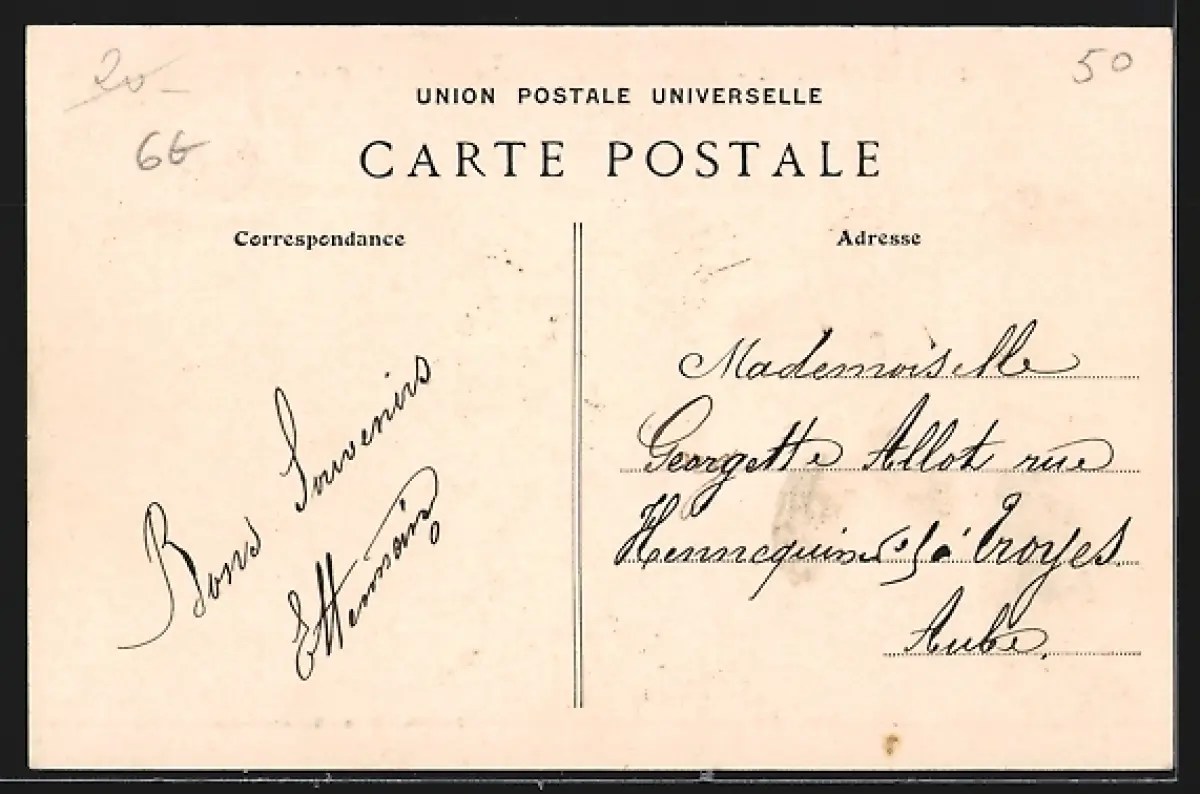 20-
50
66
UNION POSTALE UNIVERSELLE
CARTE POSTALE
Correspondance
Adresse
Bons Souvenirs
Mademoiselle
Georgette Allot rue
à Troyes
Aube.